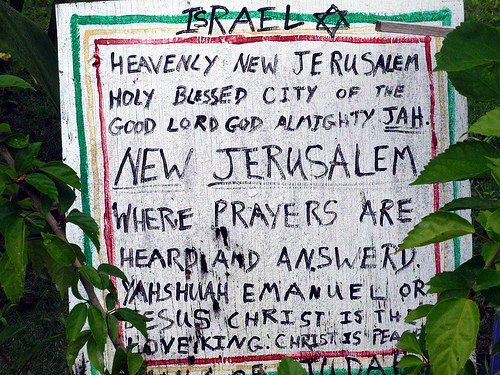 ISRAEL
HEAVENLY NEW JERUSALEM
HOLY BLESSED CITY OF THE
GOOD LORD GOD ALMIGHTY JAH.
NEW JERUSALEM
WHERE PRAYERS ARE
HEARD AND ANSWERD.
YAHSHUAH EMANUEL OR
JESUS CHRIST IS TH
LOVE KING: CHRIST IS PEAC
OF JUDAH